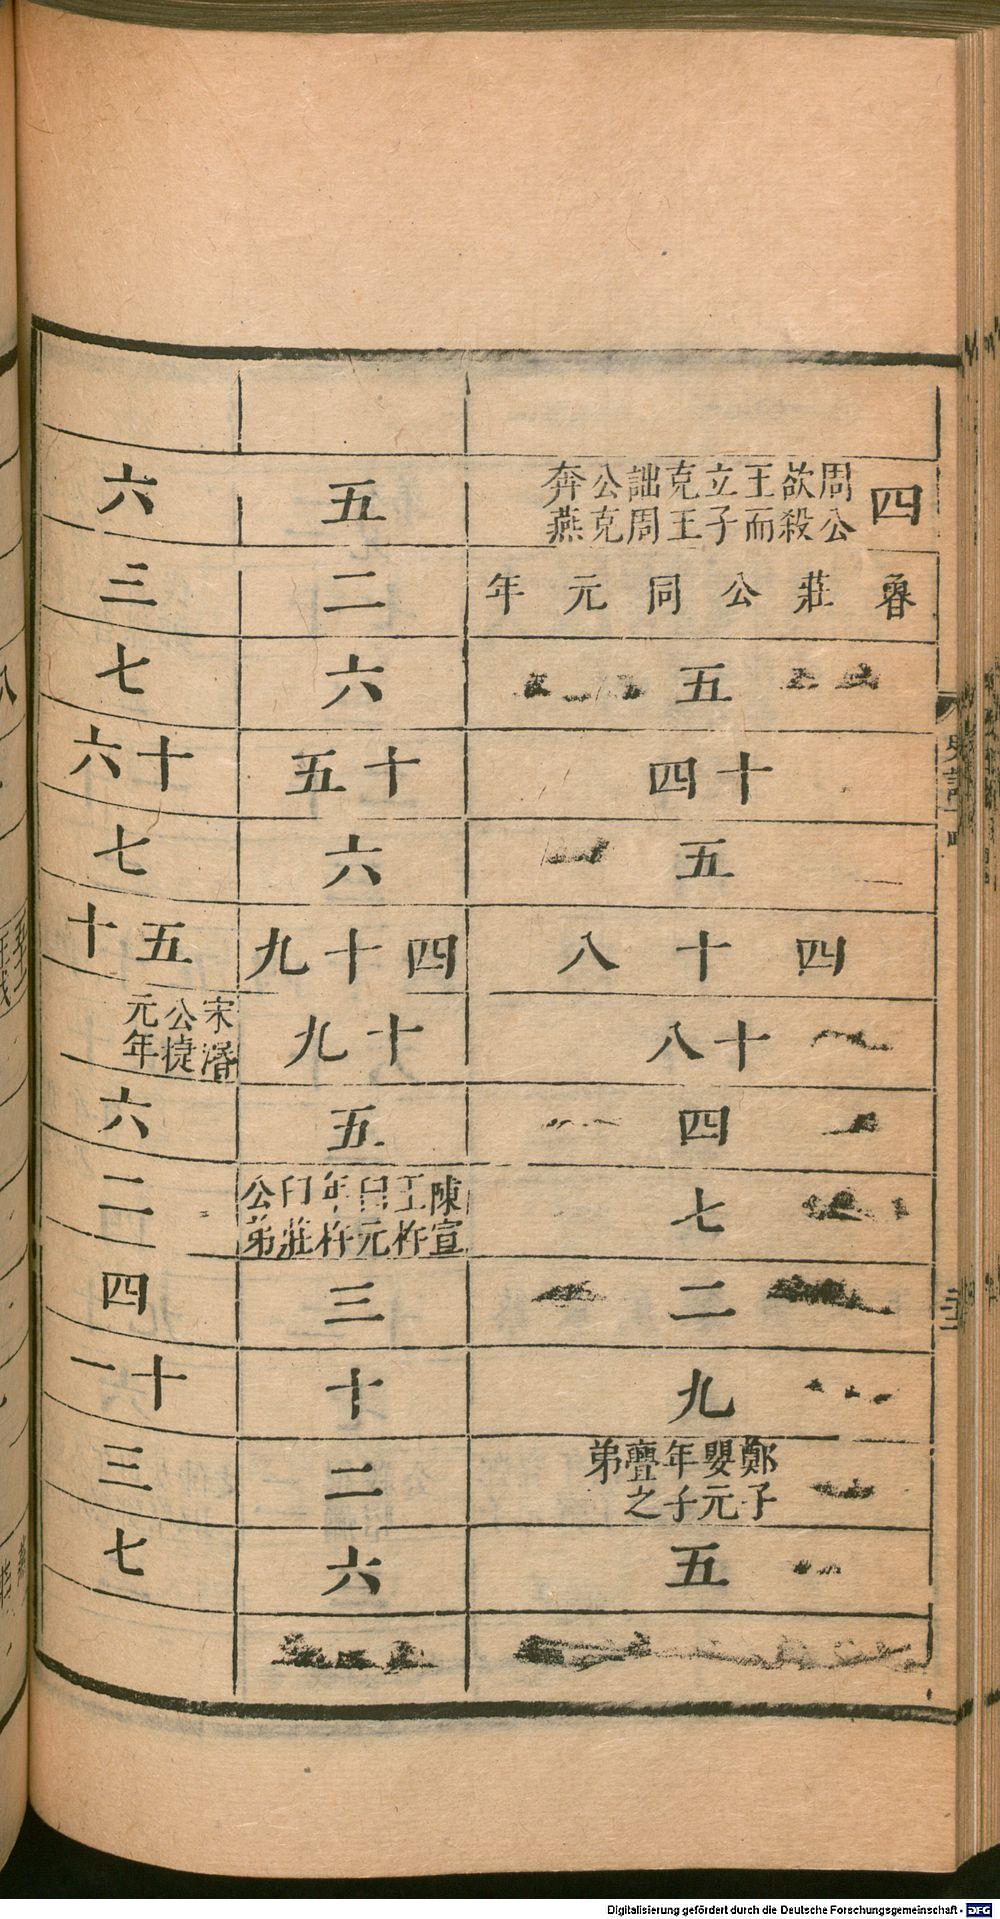 四 周公欲殺王而立子克王詘周公克奔燕
魯莊公同元年
五
十四
五
四十八
十八
四
七
二
九
鄭子嬰元年子亹之弟
五
五
二
六
十五
六
四十九
十九
五
陳宣公杵臼元年杵臼莊公弟
三
十
二
六
六
三
七
十六
七
五十
宋湣公捷元年
六
二
四
十一
三
七
史記十四
Digitalisierung gefördert durch die Deutsche Forschungsgemeinschaft - DFG